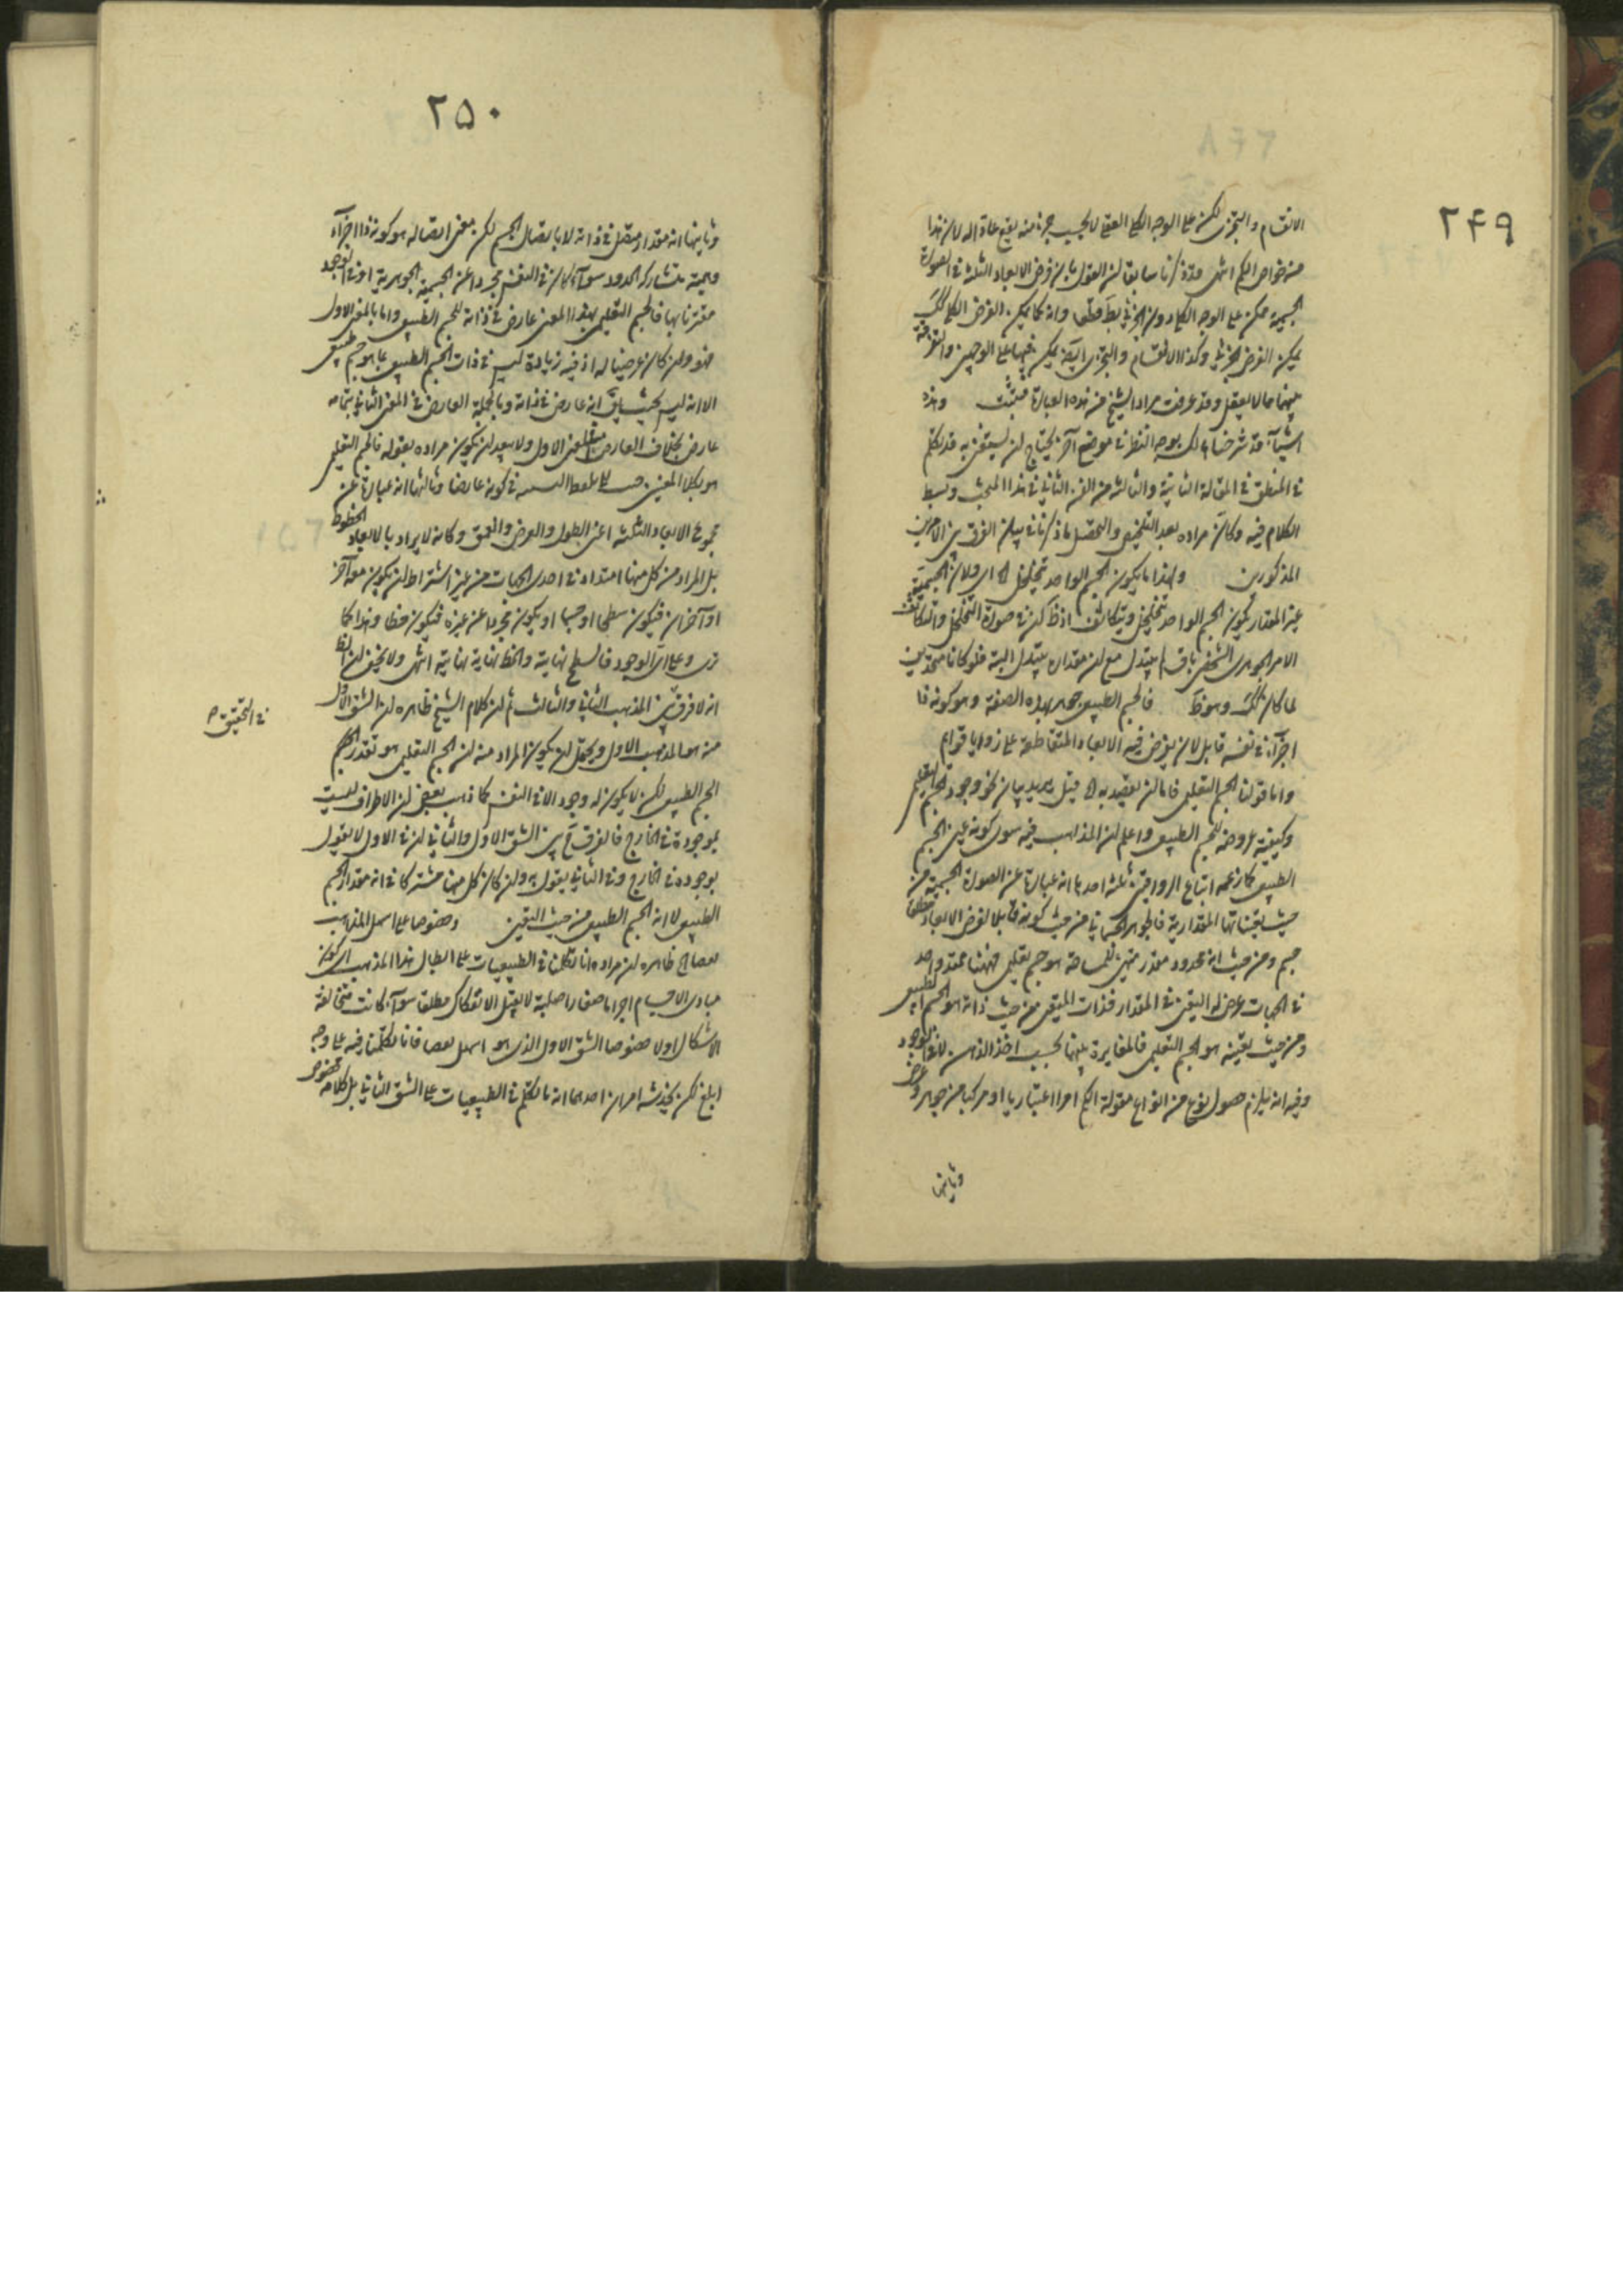 ٢٤٩
الانقسام والتجزى لكنه على الوجه الكلى العقلى لا بحسب جزء منه يقع عادا له لان هذا
من خواص الكم انتهى وقد ذكرنا سابقا ان القول بان فرض الابعاد الثلثة فى الصورة
الجسمية ممكن على الوجه الكلى دون الجزئى بط قطعا وانه كما يمكن الفرض الكلى كك
يمكن الفرض الجزئى وكذا الانقسام والتجزى ايضا يمكن فيها على الوجهين والتفرقة
بينهما مما لا يعقل وقد عرفت مراد الشيخ من هذه العبارة فتثبت وهذه
اشياء قد شرحناها لك بوجه النظر فى موضع آخر يحتاج ان يستقصى به قد تكلم
فى المنطق فى المقالة الثانية والثالثة من الفن الثانى فى هذا المبحث وبسط
الكلام فيه وكان مراده بعد التلخيص والتحصيل ما ذكرنا فى بيان الفرق بين الامرين
المذكورين ولهذا ما يكون الجسم الواحد يتخلخل اه اى ولان الجسمية
غير المقدار يكون الجسم الواحد يتخلخل ويتكاثف اذ ظ ان فى صورة التخلخل والتكاثف
الامر الجوهرى الشخصى باق لم يتبدل مع ان مقداره يتبدل البتة فلو كانا متحدين
لما كان كك وهو ظ فالجسم الطبيعى جوهر بهذه الصفة وهو كونه ذا
اجزاء فى نفسه قابل لان يفرض فيه الابعاد المتقاطعة على زوايا قوايم
واما قولنا الجسم التعليمى فاما ان نقصد به اه قيل يريد بيان نحو وجود الجسم التعليمى
وكيفية عروضه للجسم الطبيعى واعلم ان المذاهب فيه سوى كونه عين الجسم
الطبيعى كما زعمه اتباع الرواقيين ثلثة احدها انه عبارة عن الصورة الجسمية من
حيث تعيناتها المقدارية فالجوهر الجسمانى من حيث كونه قابلا لفرض الابعاد مطلقا
جسم ومن حيث انه محدود مقدر متهيئ للمساحة هو جسم تعليمى فههنا ممتد واحد
فى الجهات عرض له التعين فى المقدار فذات المتعين من حيث ذاته هو الجسم الطبيعى
ومن حيث تعينه هو الجسم التعليمى فالمغايرة بينهما بحسب اخذ الذهن لا فى الوجود
وفيه انه يلزم حصول نوع من انواع مقولة الكم امرا اعتباريا او مركبا من جوهر وعرض
وثانيها
٢٥٠
وثانيها انه مقدار متصل فى ذاته لا باتصال الجسم لكن معنى اتصاله هو كونه ذا اجزاء
وهمية متشاركة الحدود سواء كان فى النفس مجردا عن الجسمية الجوهرية او فى الوجود
مقترنا بها فالجسم التعليمى بهذا المعنى عارض فى ذاته للجسم الطبيعى واما بالمعنى الاول
فهو وان كان عرضيا له اذ فيه زيادة ليس فى ذات الجسم الطبيعى بما هو جسم طبيعى
الا انه ليس بحيث يقال انه عارض فى ذاته وبالجملة العارض فى المعنى الثانى بتمامه
عارض بخلاف العارض بالمعنى الاول ولا يبعد ان يكون مراده بقوله فالجسم التعليمى
هو بكلا المعنيين فى كونه عارضا وثالثها انه عبارة عن
مجموع الابعاد الثلثة اعنى الطول والعرض والعمق وكانه لا يراد بالابعاد الخطوط
بل المراد من كل منها امتداد فى احدى الجهات من غير اشتراط ان يكون معه آخر
او آخران فيكون سطحا او جسما او يكون مجردا عن غيره فيكون خطا وهذا كما
ترى وعلى اى الوجوه فالسطح نهايته والخط نهاية نهايته انتهى ولا يخفى ان الظ
انه لا فرق بين المذهب الثانى والثالث ثم ان كلام الشيخ ظاهره ان الشق الاول
فى التحقيق ص
منه هو المذهب الاول ويحتمل ان يكون المراد منه ان الجسم التعليمى هو تقدر الجسم
الجسم الطبيعى لكن لا يكون له وجود الا فى النفس كما ذهب بعض ان الاطراف ليست
بموجودة فى الخارج فالفرق ح بين الشق الاول والثانى ان فى الاول لا يقول
بوجوده فى الخارج وفى الثانى يقول به وان كان كل منهما مشتركا فى انه مقدار الجسم
الطبيعى لا انه الجسم الطبيعى من حيث التعين وخصوصا على اسهل المذاهب
ظاهره ان مراده انا تكلمنا فى الطبيعيات على ابطال هذا المذهب اى كون
مبادى الاجسام اجراما صغارا صلبة لا يقبل الانفكاك مطلقا سواء كانت متخالفة
الاشكال او لا خصوصا الشق الاول الذى هو اسهل فانا تكلمنا فيه على وجه
ابلغ لكن يخدشه امران احدهما انه ما تكلم فى الطبيعيات على الشق الثانى بل كلامه مخصوص